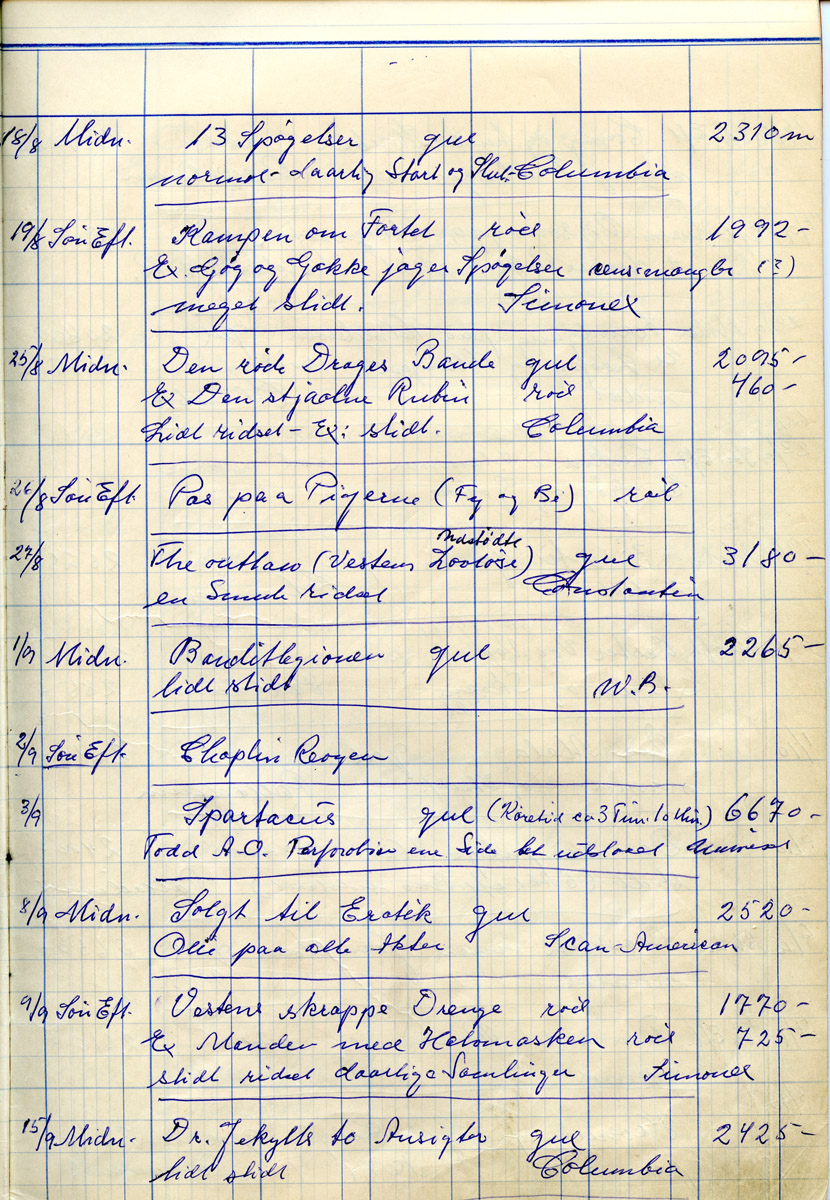 18/8 Midn. 13 Spøgelser gul 2310 m
normal - daarlig Start og Slut - Columbia
19/8 Søn Eft. Kampen om Fortet rød 1992 -
Ex. Gøg og Gokke jager Spøgelser cens: mangler (?)
meget slidt. Simonex
25/8 Midn. Den røde Drages Bande gul 2095 -
Ex Den stjaalne Rubin rød 460 -
Lidt ridset - Ex: slidt. Columbia
26/8 Søn Eft. Pas paa Pigerne (Fy og Bi) rød
Udstødte
27/8 The outlaw (Vestens Lovløse) gul 3180 -
en Smule ridset Constantin
1/9 Midn. Banditlegionen gul 2265 -
lidt slidt W.B.
2/9 Søn Eft. Chaplin Revyen
3/9 Spartacus gul (Køretid ca 3 Tim. 10 Min.) 6670 -
Todd A-O. Perforation ene Side lidt udslaaet Universal
8/9 Midn. Solgt til Erotik gul 2520 -
Olie paa alle Akter Scan-American
9/9 Søn Eft. Vestens skrappe Drenge rød 1770 -
Ex Manden med Halvmasken rød 725 -
slidt ridset daarlige Samlinger Simonex
15/9 Midn. Dr. Jekylls to Ansigter gul 2425 -
lidt slidt Columbia